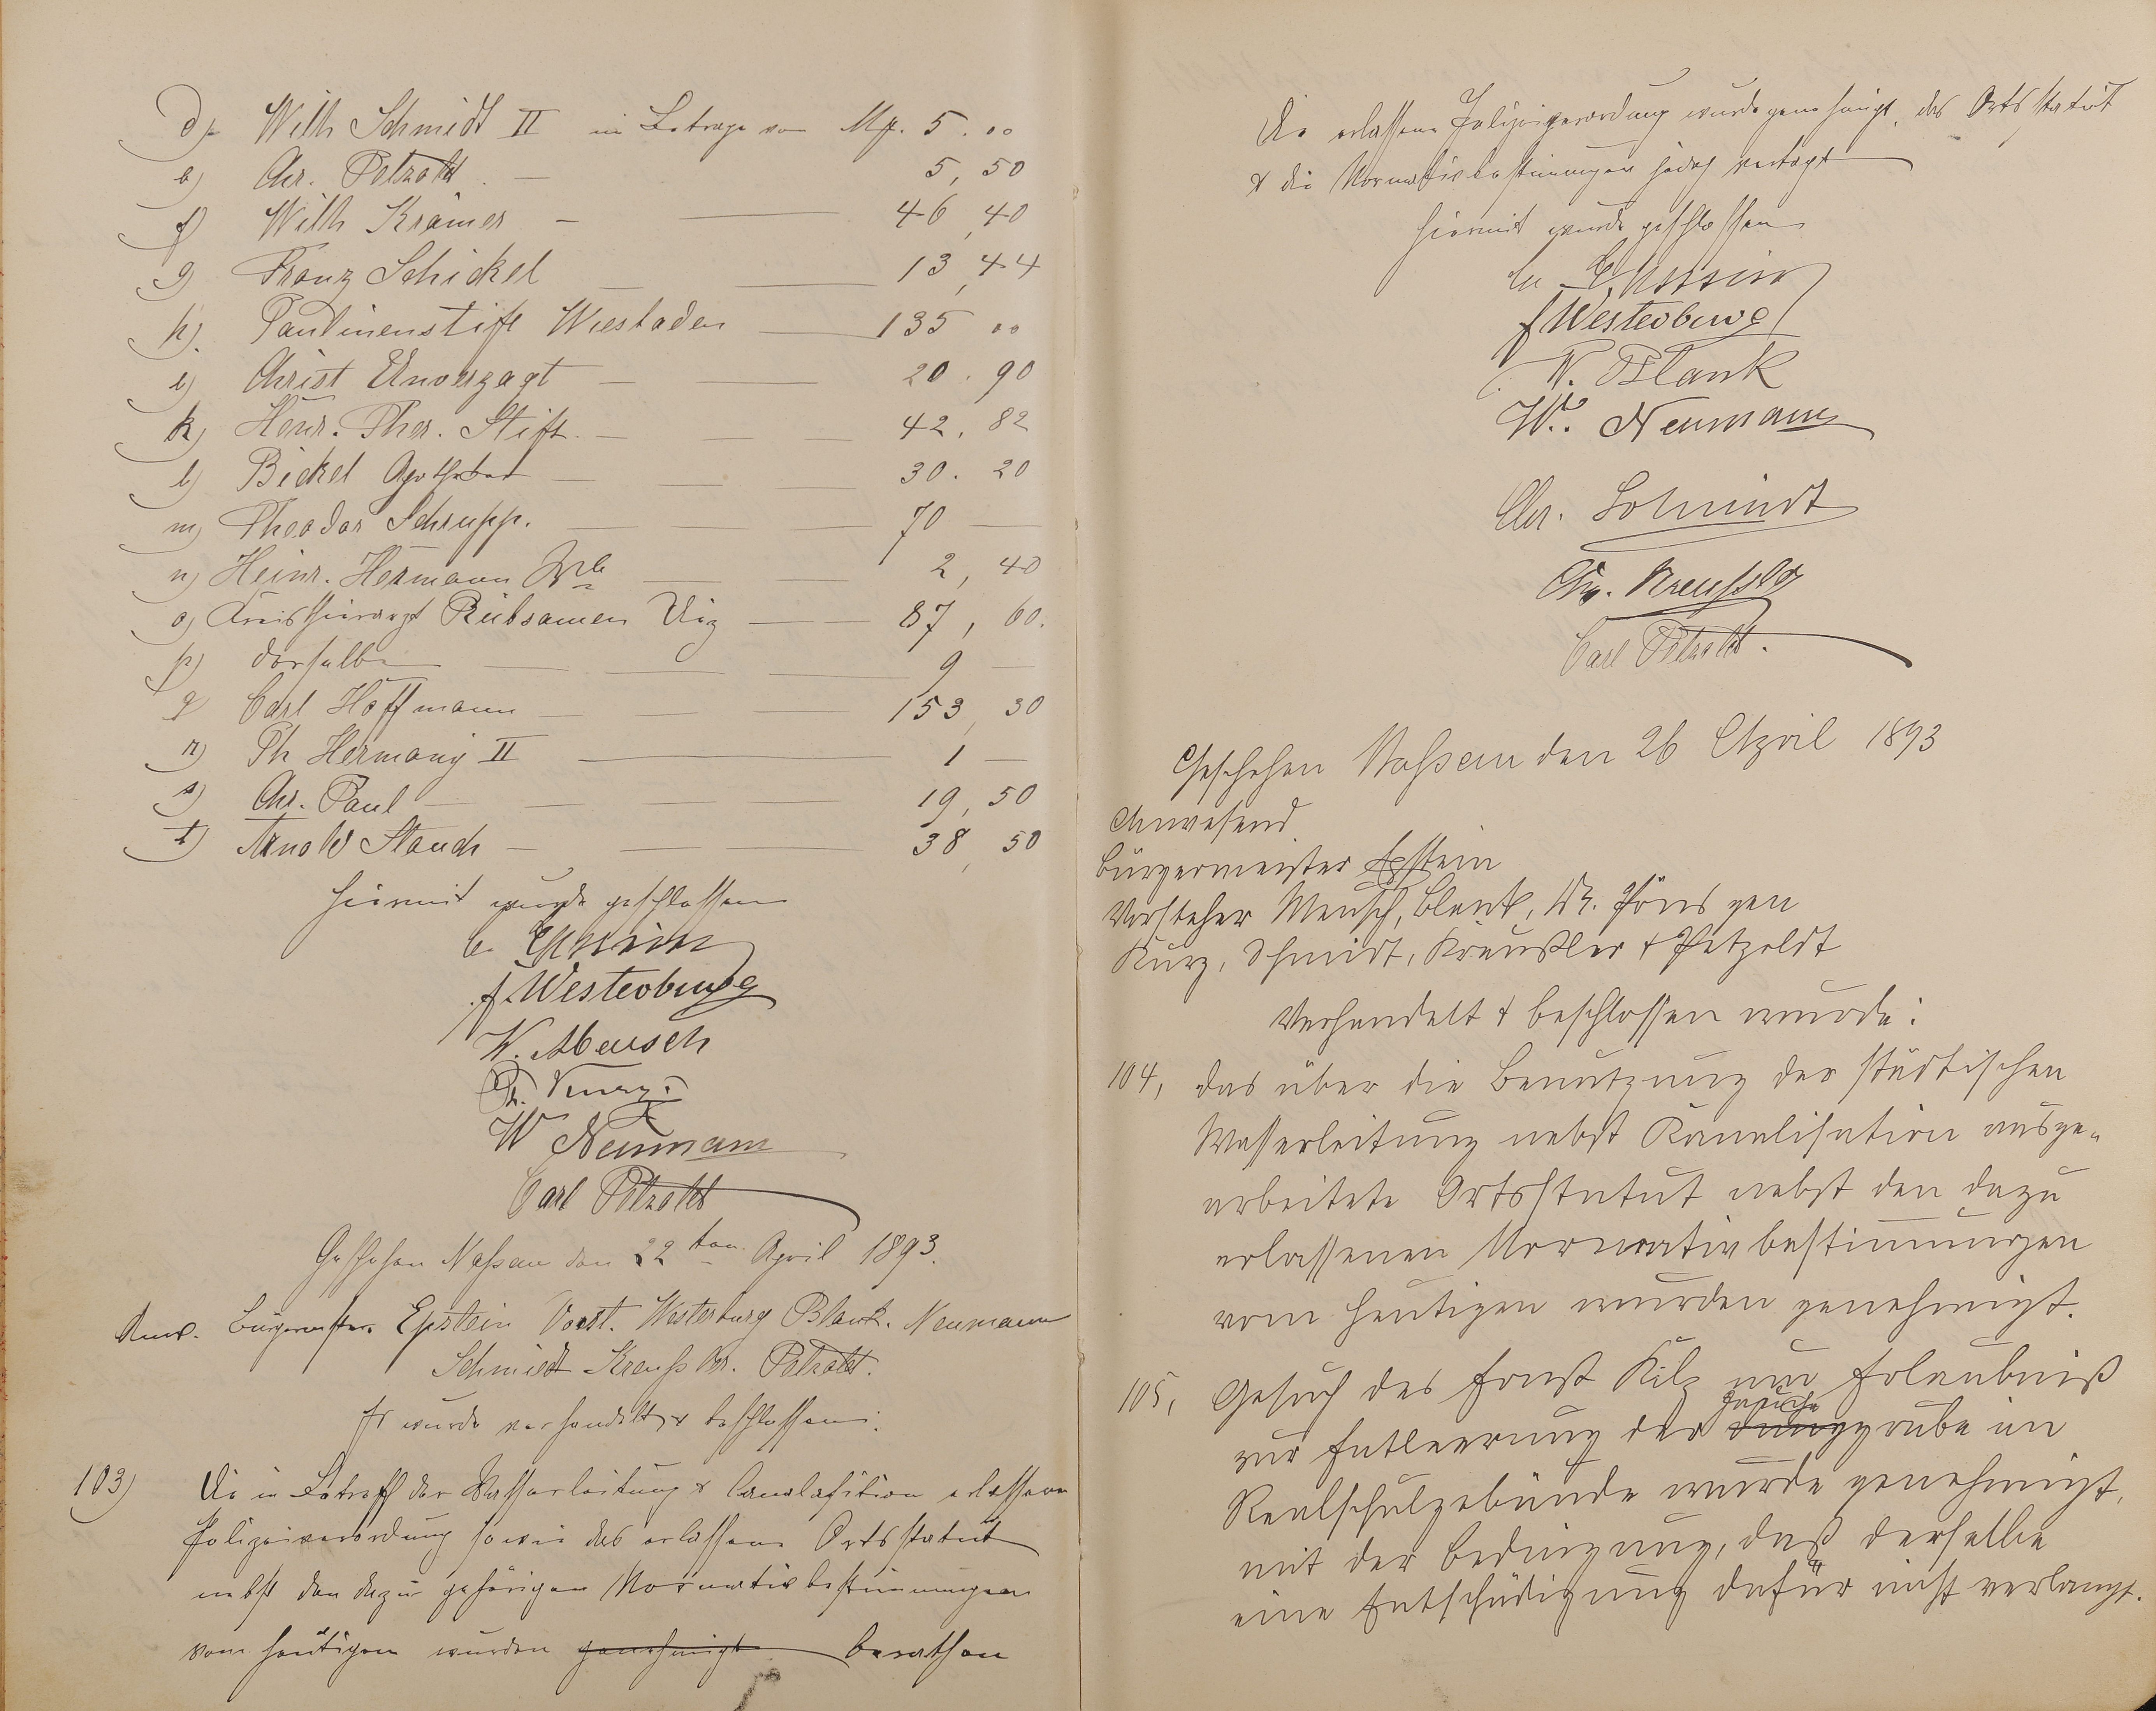 d) Wilh Schmidt II im Betrage von Mk. 5. 00
e) Chr. Petzoldt — 5, 50
f) Wilh Krämer — 46, 40
g) Franz Schickel — 13, 44
h) Paulinenstift Wiesbaden — 135 00
i) Christ Unverzagt — 20. 90
k) Henr. Ther. Stift. — 42, 82
l) Bickel Apotheker — 30. 20
m) Theodor Schrupp. — 70 —
n) Heinr. Hermann Wwe — 2, 40
o) Kreisthierarzt Rübsamen Diez — 87, 60.
p) derselbe — 9 —
q) Carl Hoffmann — 153, 30
r) Ph Hermany II — 1 —
s) Chr. Paul — 19, 50
t) Arnold Stauch — 38, 50
Hiermit wurde geschlossen
Epstein
F. Westerburg
W. Mensch
Ph. Kurz.
W Neumann
Carl Petzoldt
Geschehen Nassau den 22ten April 1893.
Anw. Bürgermstr. Epstein Vorst. Westerburg Blank. Neumann
Schmidt Kreußler. Petzoldt.
Es wurde verhandelt & beschlossen:
103) Die in Betreff der Wasserleitung & Canalisation erlassene
Polizeiverordnung sowie das erlassene Ortsstatut
nebst den dazu gehörigen Normativbestimmungen
vom heutigen wurden genehmigt berathen
Die erlassene Polizeiverordnung wurde genehmigt, das Ortsstatut
& die Normativbestimmungen jedoch vertagt
Hiermit wurde geschlossen
Epstein
F Westerburg
W. Blank
W. Neumann
Chr. Schmidt
Chr. Kreußler
Carl Petzoldt.
Geschehen Nassau den 26 April 1893
Anwesend
Bürgermeister Epstein
Vorsteher Mensch, Blank,
Kurz, Schmidt, Kreußler & Petzoldt
Verhandelt & beschlossen wurde:
104, Das über die Benutzung der städtischen
Wasserleitung nebst Kanalisation ausge-
arbeitete Ortsstatut nebst den dazu
erlassenen Normativbestimmungen
vom heutigen wurden genehmigt.
105, Gesuch des Ernst Kilz um Erlaubniß
zur Entleerung der grube im
Realschulgebäude wurde genehmigt,
mit der Bedingung, daß derselbe
eine Entschädigung dafür nicht verlangt.